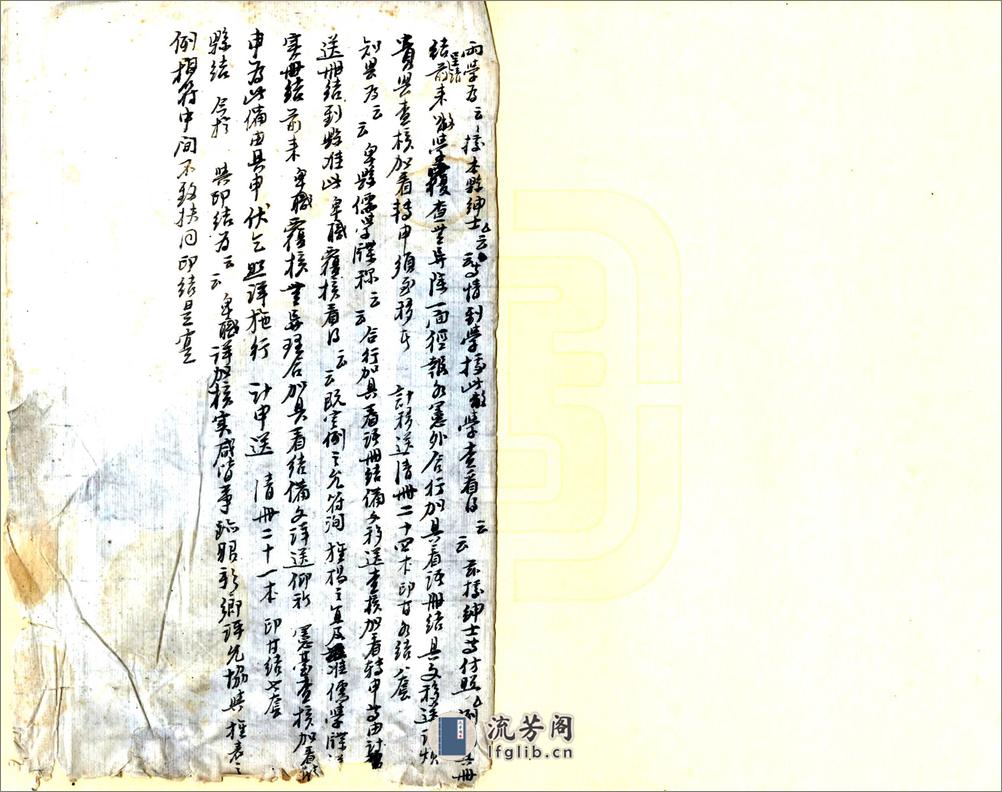 兩學為云云據本縣紳士云云等情到學據此敝學查看得云云茲據紳士等付照冊
結前來敝學覆查無異除一面徑報外合行加具看語冊結具文移送
貴縣查核加看轉申須至移者 計移送清冊二十四本印甘各結套
知縣為云云卑縣儒學牒稱云云合行加具看語冊結備文移送查核加看轉申等由計
送冊結到縣准此卑職覆核看得云云既例之允符洵推揚之宜及准儒學牒
實冊結前來卑職覆核無異理合加具看結備文詳送仰祈 憲臺查核加看
申為此備由具申伏乞照詳施行 計申送 清冊二十一本 印甘結七套
縣結 今於 與印結為云云卑職詳加核實咸皆事鄉評允協與推表之
例相符中間不致扶同印結是實
流芳阁
lfglib.cn